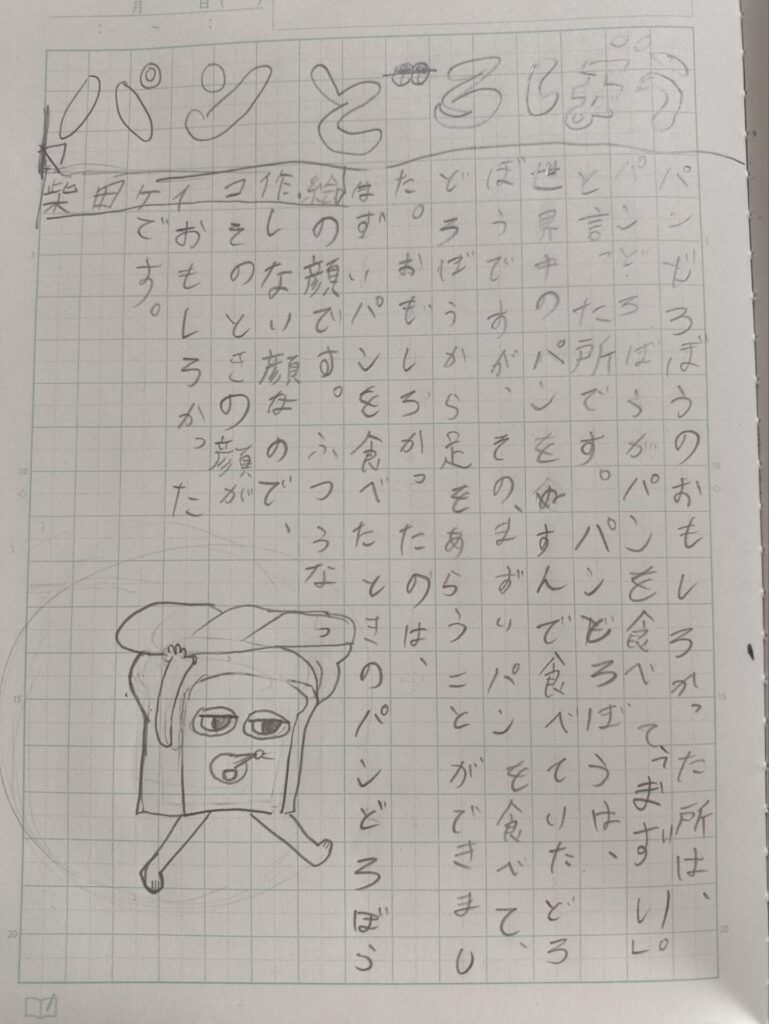 月 日( )
: ~ :
パンどろぼう
柴田ケイコ作.絵
パンどろぼうのおもしろかった所は、
パンどろぼうがパンを食べて、「まずい」。
と言った所です。パンどろぼうは、
世界中のパンをぬすんで食べていたどろ
ぼうですが、そのまずいパンを食べて、
どろぼうから足をあらうことができまし
た。おもしろかったのは、
まずいパンを食べたときのパンどろぼう
の顔です。ふつうなら
しない顔なので、
そのときの顔が
おもしろかった
です。
5
10
15
20
5
10
15
20